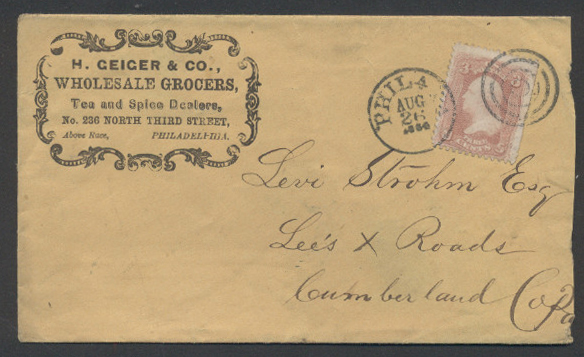 H. GEIGER & CO.,
WHOLESALE GROCERS,
Tea and Spice Dealers,
No. 236 NORTH THIRD STREET,
Above Race, PHILADELPHIA.
PHILA
AUG
26
3 3
Levi Strohm Esq
Lee's X Roads
Cumberland Co Pa